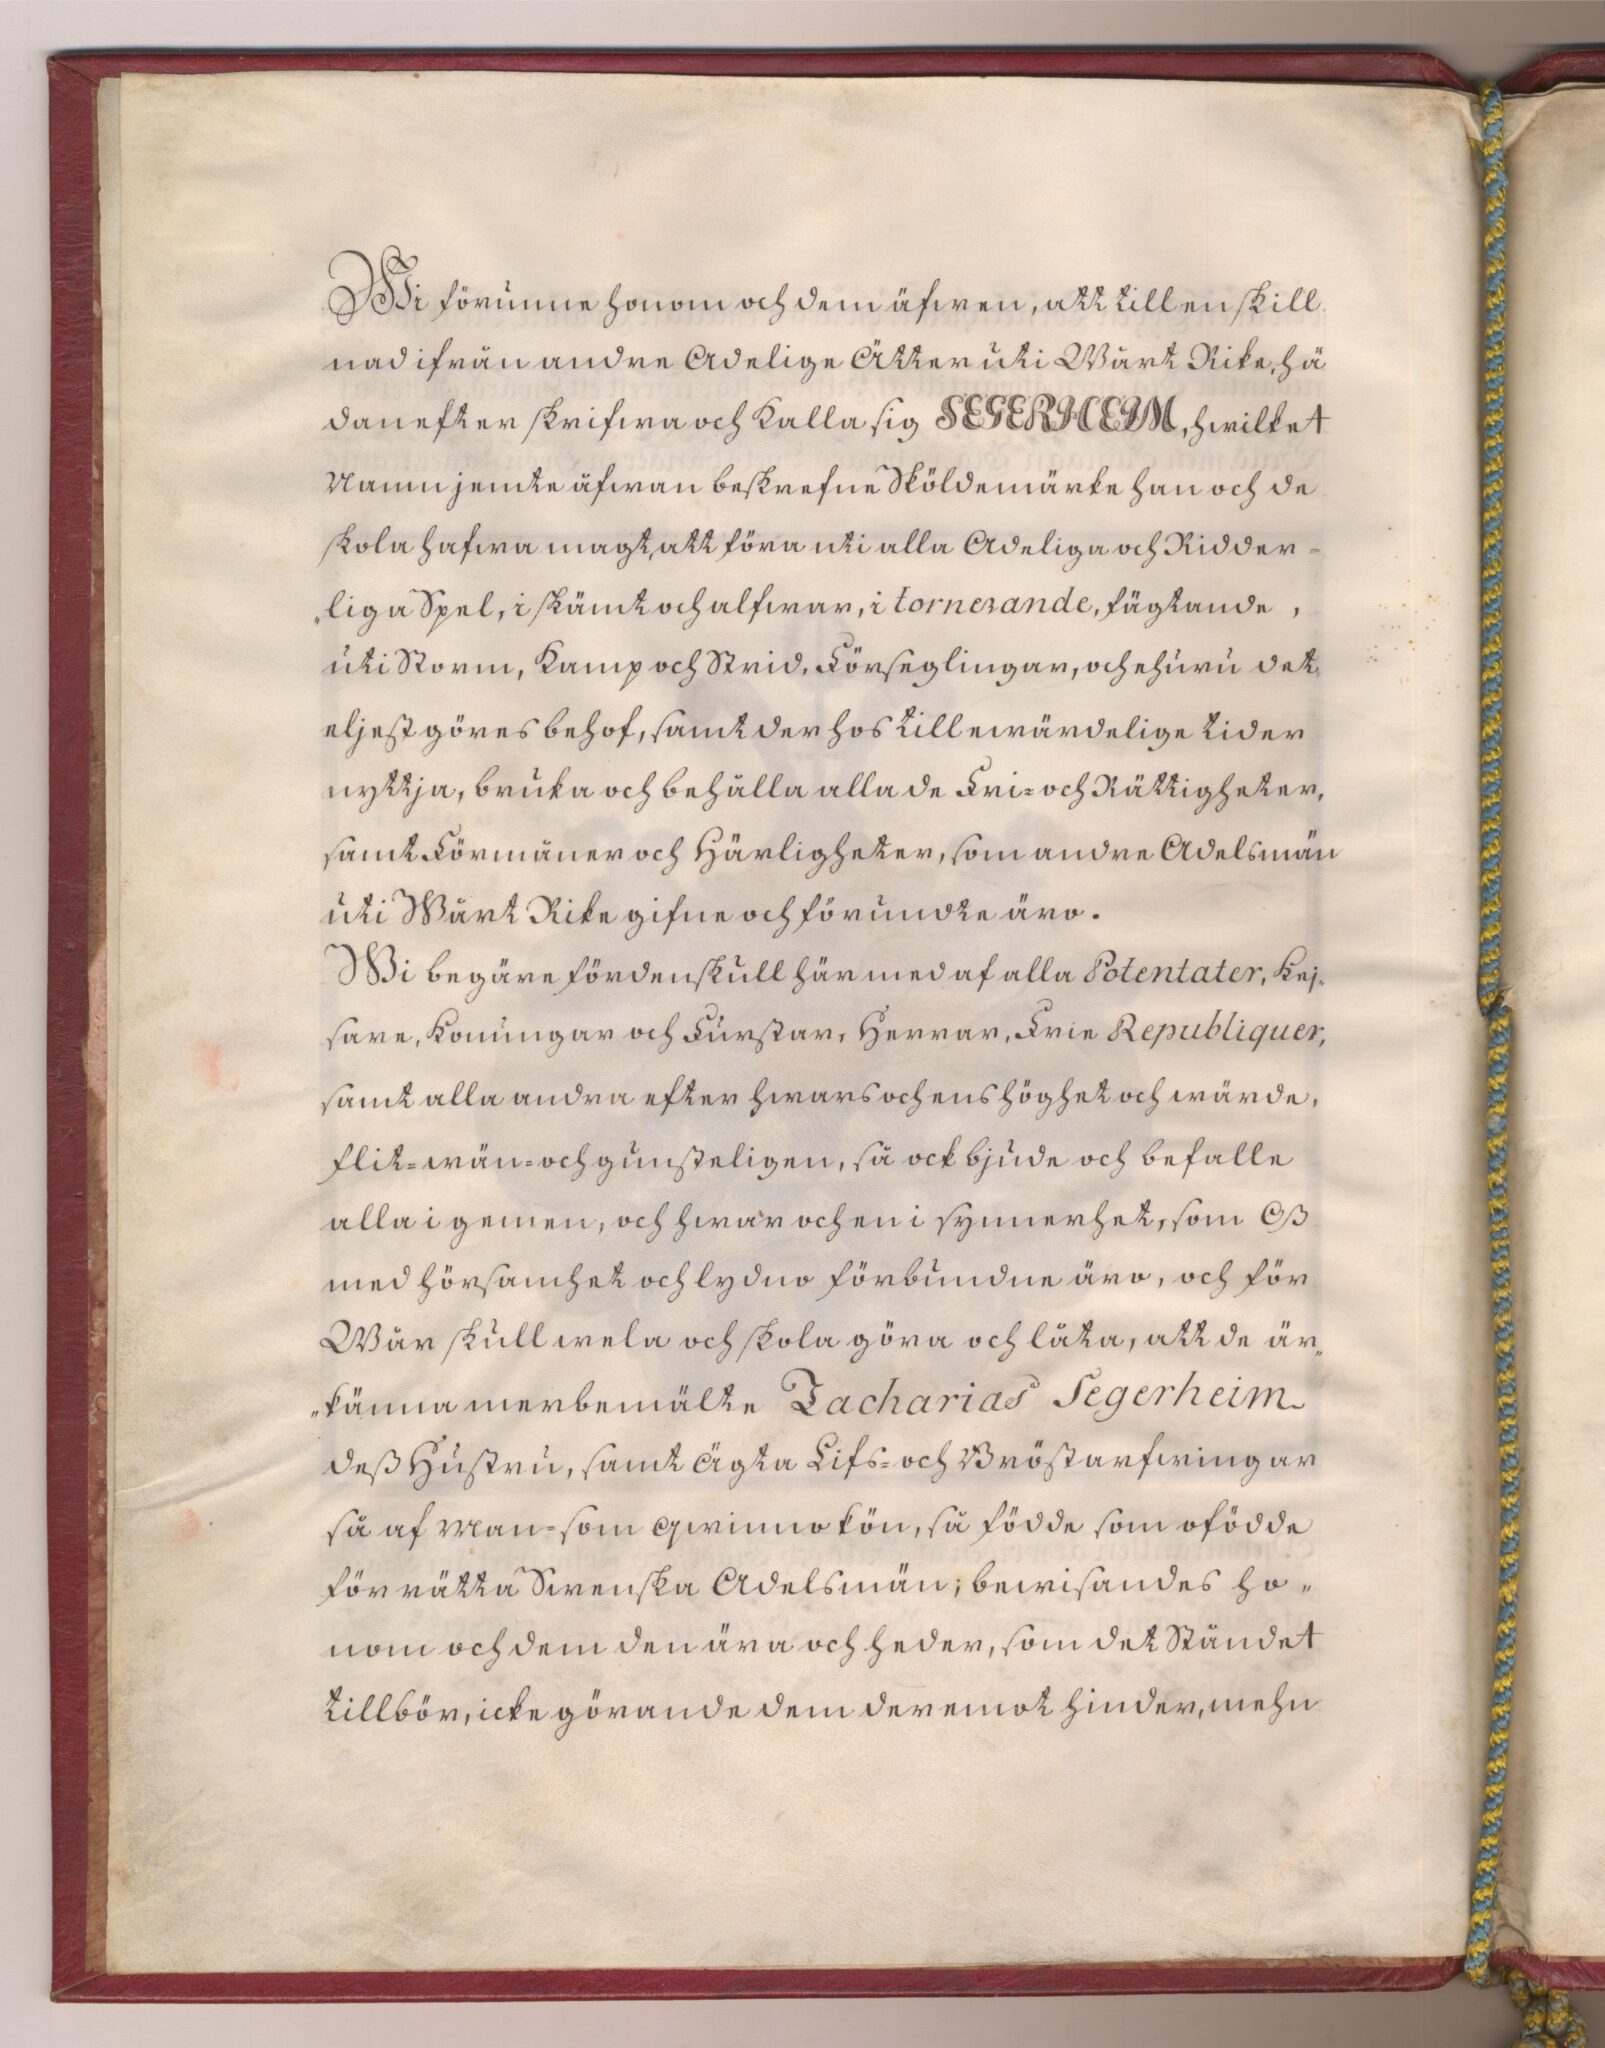 Wi förunne honom och dem äfwen, att till en skill
nad ifrån andre Adelige Ätter uti Wårt Rike, hä
danefter skrifwa och kalla sig SEGERHEIM, hwilket
Namn jemte äfwan beskrefne Sköldemärke han och de
skola hafwa magt, att föra uti alla Adeliga och Ridder-
„liga Spel, i skämt och alfwar, i tornerande, fägtande,
uti Storm, Kamp och Strid, Förseglingar, och ehuru det
eljest göres behof, samt der hos till ewärdelige tider
nyttja, bruka och behålla alla de Fri- och Rättigheter,
samt Förmåner och Härligheter, som andre Adelsmän
uti Wårt Rike gifne och förundte äro.
Wi begäre fördenskull här med af alla Potentater, Kej-
sare, Konungar och Furstar, Herrar, Frie Republiquer,
samt alla andra efter hwars och ens höghet och wärde,
flit- wän- och gunsteligen, så ock bjude och befalle
alla i gemen, och hwar och en i synnerhet, som Oß
med hörsamhet och lydno förbundne äro, och för
Wår skull wela och skola göra och låta, att de är„
„känna merbemälte Zacharias Segerheim
deß Hustru, samt ägta Lifs- och Bröstarfwingar
så af Man- som Qwinnokön, så födde som ofödde
för rätta Swenska Adelsmän; bewisandes ho„
nom och dem den ära och heder, som det Ståndet
tillbör, icke görande dem deremot hinder, mehn